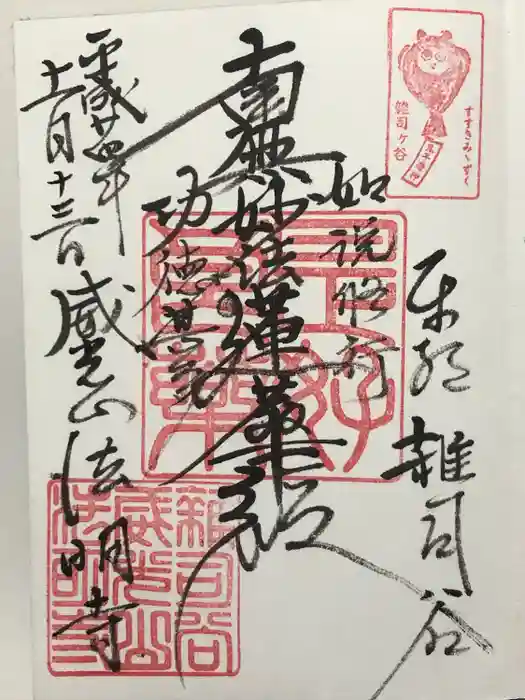 雑司ヶ谷
すすきみゝずく
東都 雑司谷
如説修行
南無妙法蓮華経
功徳甚多
平成廿四年
十一月十三日 威光山 法明寺
雑司谷
威光山
法明寺